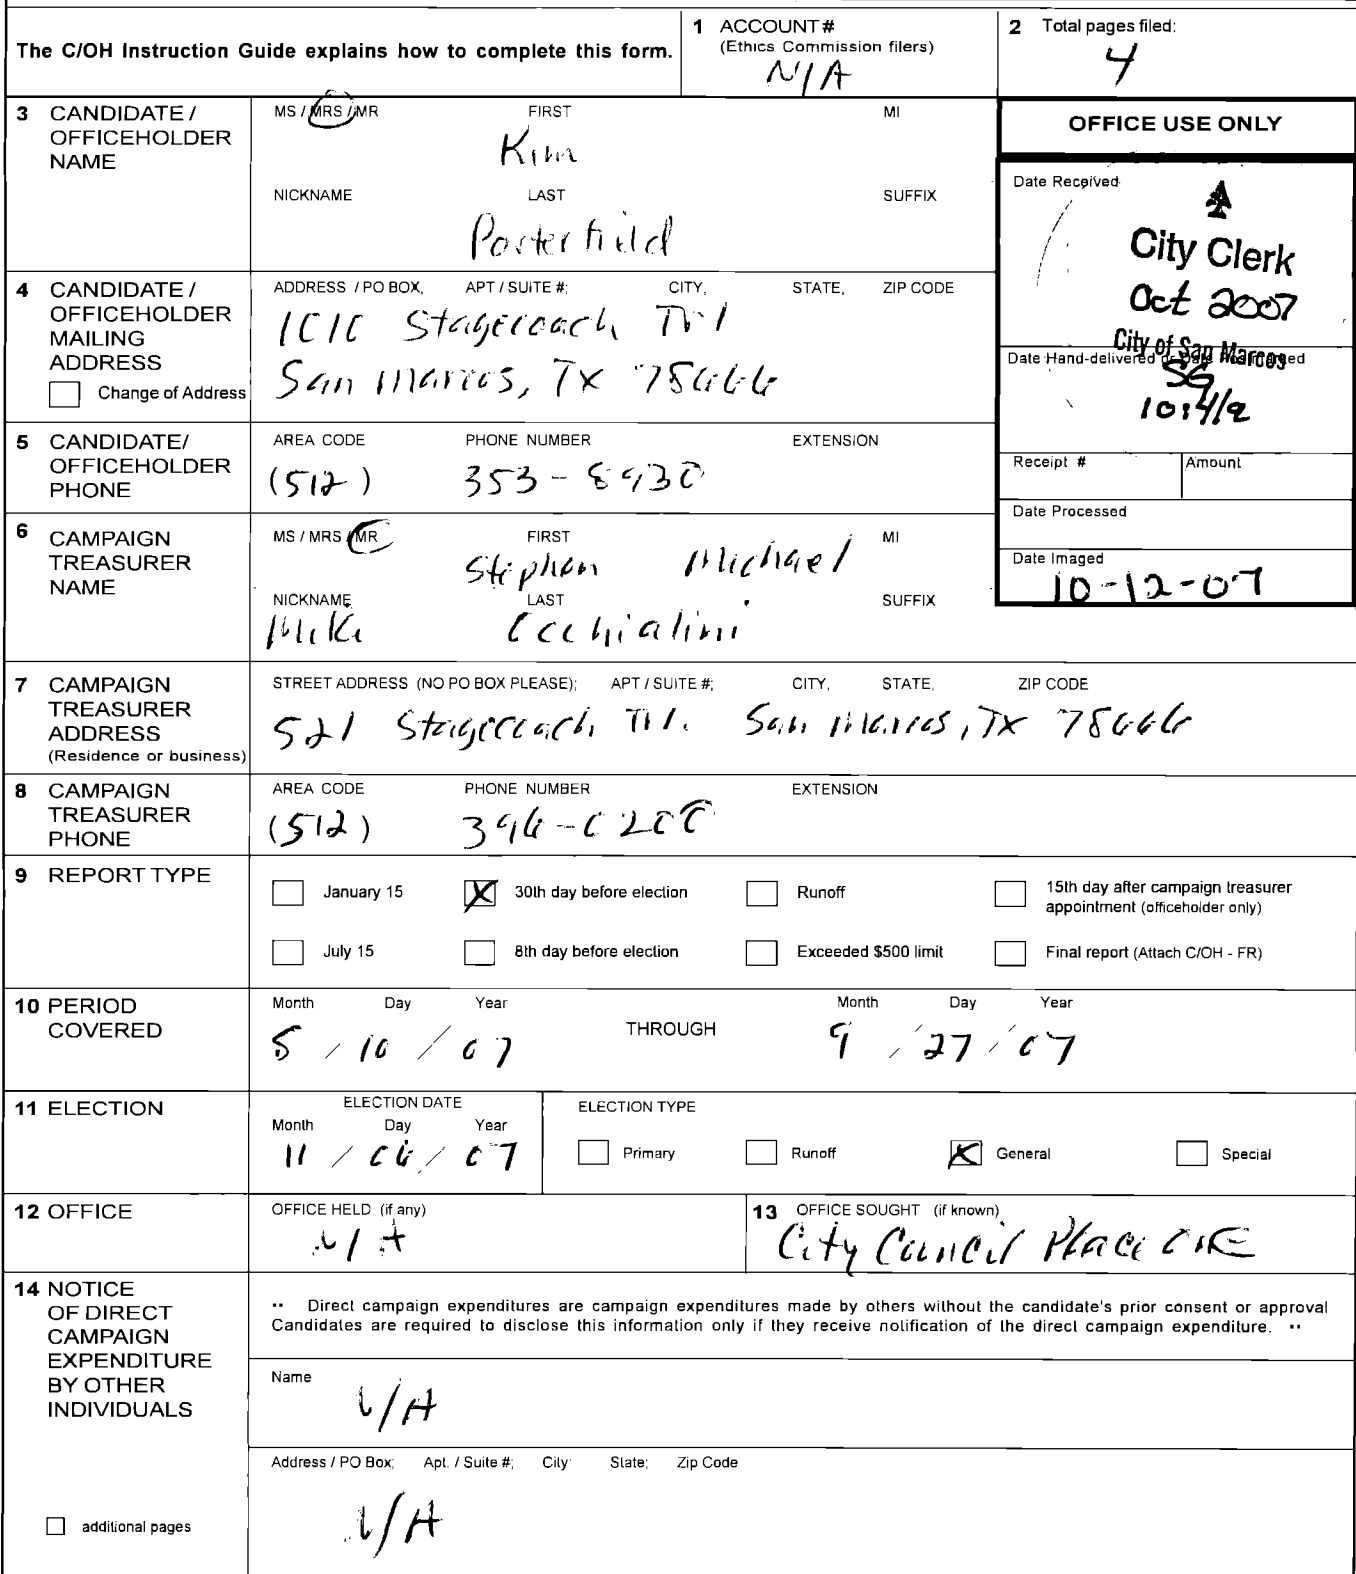 The C/OH Instruction Guide explains how to complete this form.
1 ACCOUNT #
(Ethics Commission filers)
N/A
2 Total pages filed:
4
3 CANDIDATE / OFFICEHOLDER NAME
MS / MRS / MR FIRST MI
Kim
NICKNAME LAST SUFFIX
Porterfield
OFFICE USE ONLY
Date Received
City Clerk
Oct 2007
City of San Marcos
Date Hand-delivered or Date Postmarked
SG
Receipt # Amount
Date Processed
Date Imaged
10-12-07
4 CANDIDATE / OFFICEHOLDER MAILING ADDRESS
Change of Address
ADDRESS / PO BOX; APT / SUITE #; CITY, STATE, ZIP CODE
1010 Stagecoach Trl
San Marcos, TX 78666
5 CANDIDATE/ OFFICEHOLDER PHONE
AREA CODE PHONE NUMBER EXTENSION
(512) 353-8930
6 CAMPAIGN TREASURER NAME
MS / MRS / MR FIRST MI
Stephen Michael
NICKNAME LAST SUFFIX
Mike Occhialini
7 CAMPAIGN TREASURER ADDRESS
(Residence or business)
STREET ADDRESS (NO PO BOX PLEASE); APT / SUITE #; CITY, STATE, ZIP CODE
521 Stagecoach Trl. San Marcos, TX 78666
8 CAMPAIGN TREASURER PHONE
AREA CODE PHONE NUMBER EXTENSION
(512) 396-0200
9 REPORT TYPE
January 15 X 30th day before election Runoff 15th day after campaign treasurer appointment (officeholder only)
July 15 8th day before election Exceeded $500 limit Final report (Attach C/OH - FR)
10 PERIOD COVERED
Month Day Year Month Day Year
8 / 10 / 07 THROUGH 9 / 27 / 07
11 ELECTION
ELECTION DATE
Month Day Year
11 / 06 / 07
ELECTION TYPE
Primary Runoff X General Special
12 OFFICE
OFFICE HELD (if any)
N/A
13 OFFICE SOUGHT (if known)
City Council Place One
14 NOTICE OF DIRECT CAMPAIGN EXPENDITURE BY OTHER INDIVIDUALS
·· Direct campaign expenditures are campaign expenditures made by others without the candidate's prior consent or approval
Candidates are required to disclose this information only if they receive notification of the direct campaign expenditure. ··
Name
N/A
Address / PO Box; Apt. / Suite #; City; State; Zip Code
N/A
additional pages